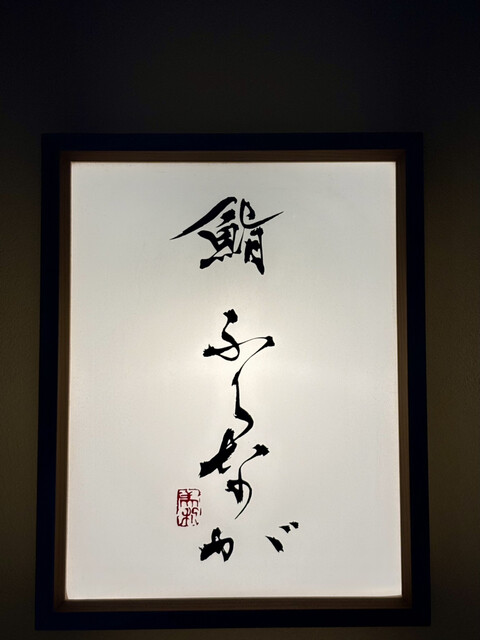 鮨
ふくなが